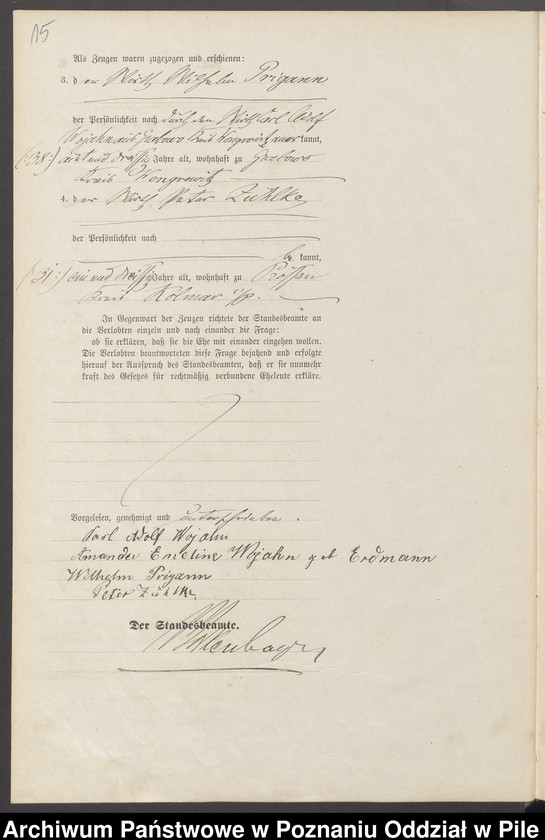 15
Als Zeugen waren zugezogen und erschienen:
3. der Wirth Wilhelm Prigann
der Persönlichkeit nach durch den Wirth Carl Adolf
Wojahn aus Grabowo Kreis Wongrowitz anerkannt,
(:38:) acht und dreißig Jahre alt, wohnhaft zu Grabowo
Kreis Wongrowitz
4. der Wirth Peter Zühlke
der Persönlichkeit nach
be kannt,
(:31:) ein und dreißig Jahre alt, wohnhaft zu
Kreis Kolmar i/p.
In Gegenwart der Zeugen richtete der Standesbeamte an
die Verlobten einzeln und nach einander die Frage:
ob sie erklären, daß sie die Ehe mit einander eingehen wollen.
Die Verlobten beantworteten diese Frage bejahend und erfolgte
hierauf der Ausspruch des Standesbeamten, daß er sie nunmehr
kraft des Gesetzes für rechtmäßig verbundene Eheleute erkläre.
Vorgelesen, genehmigt und unterschrieben.
Karl Adolf Wojahn
Amande Emeline Wojahn geb Erdmann
Wilhelm Prigann
Peter Zühlke
Der Standesbeamte.
Archiwum Państwowe w Poznaniu Oddział w Pile